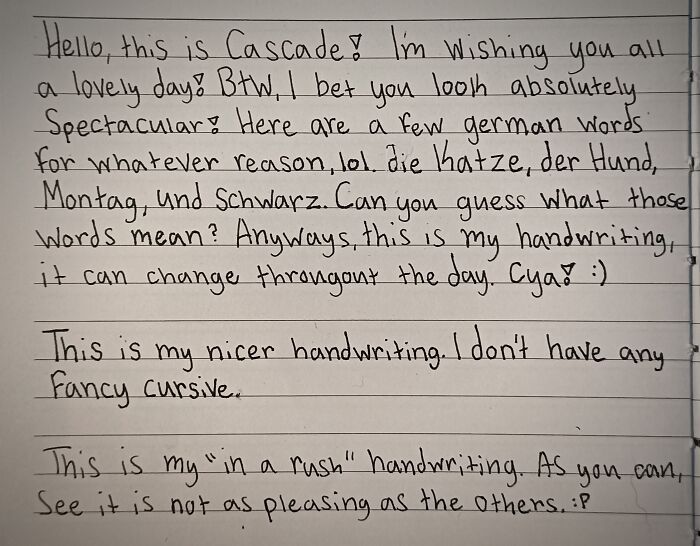 Hello, this is Cascade! I'm wishing you all
a lovely day! BtW, I bet you look absolutely
Spectacular! Here are a few german words
for whatever reason, lol. die Katze, der Hund,
Montag, und Schwarz. Can you guess what those
words mean? Anyways, this is my handwriting,
it can change througout the day. Cya! :)
This is my nicer handwriting. I don't have any
fancy cursive.
This is my "in a rush" handwriting. As you can,
see it is not as pleasing as the others. :P